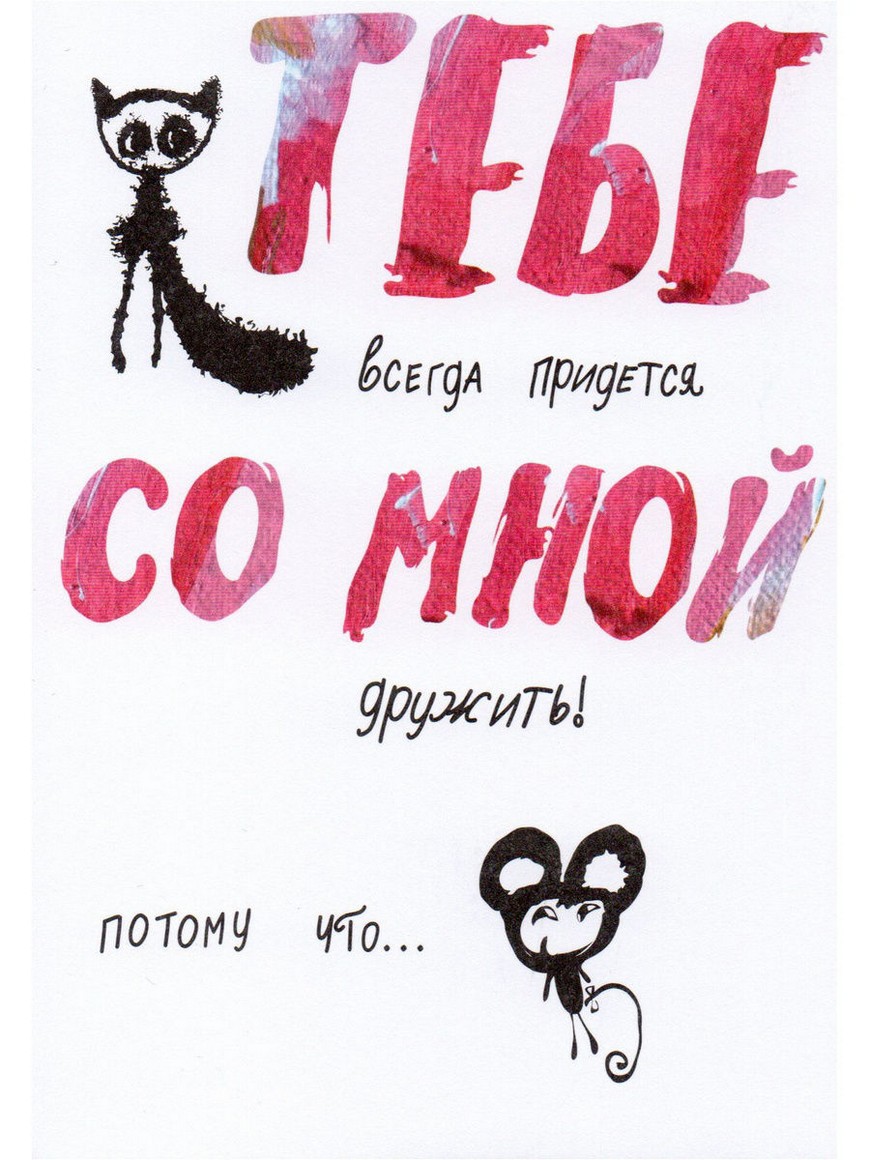 ТЕБЕ
всегда придется
СО МНОЙ
дружить!
потому что...